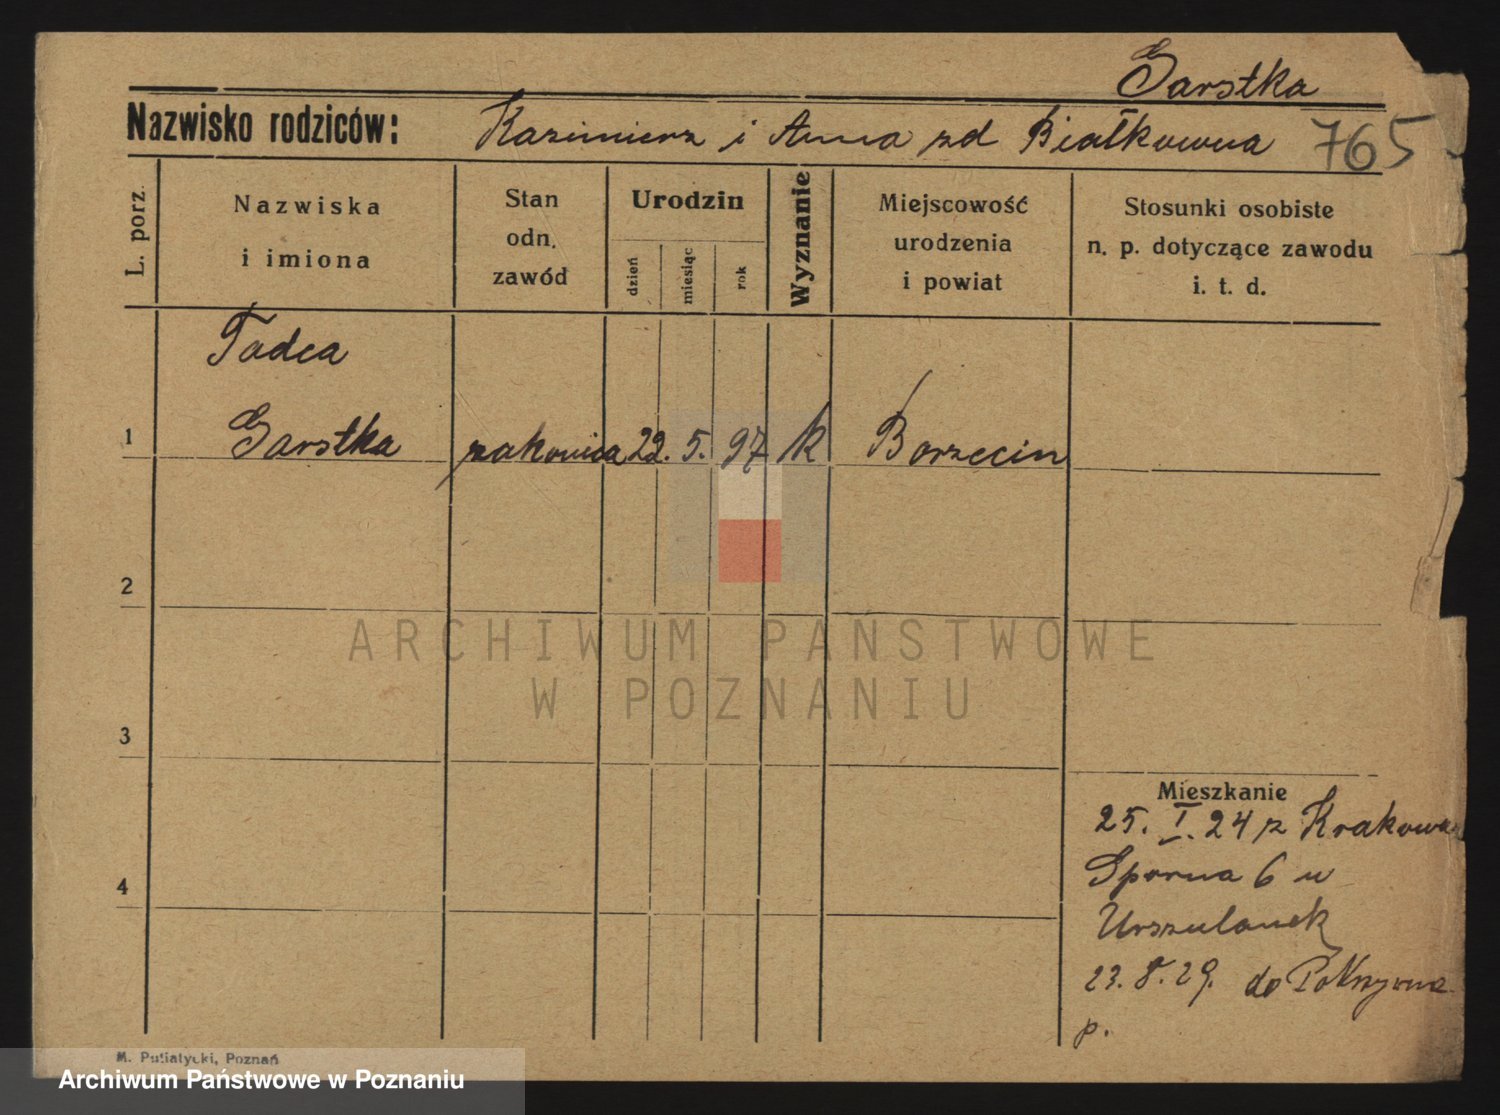 Garstka
Nazwisko rodziców: Kazimierz i Anna zd Białkowna 765
L. porz.
Nazwiska
i imiona
Stan
odn.
zawód
Urodzin
dzień
miesiąc
rok
Wyznanie
Miejscowość
urodzenia
i powiat
Stosunki osobiste
n. p. dotyczące zawodu
i. t. d.
Tadea
1 Garstka zakonica 22. 5. 97 k Borzecin
2
3
4
ARCHIWUM PAŃSTWOWE
W POZNANIU
Mieszkanie
25. I. 24 z Krakowa
Sporna 6 u
Urszulanek
23. 8. 29. do Pokrzywna
p.
M. Putiatycki, Poznań
Archiwum Państwowe w Poznaniu